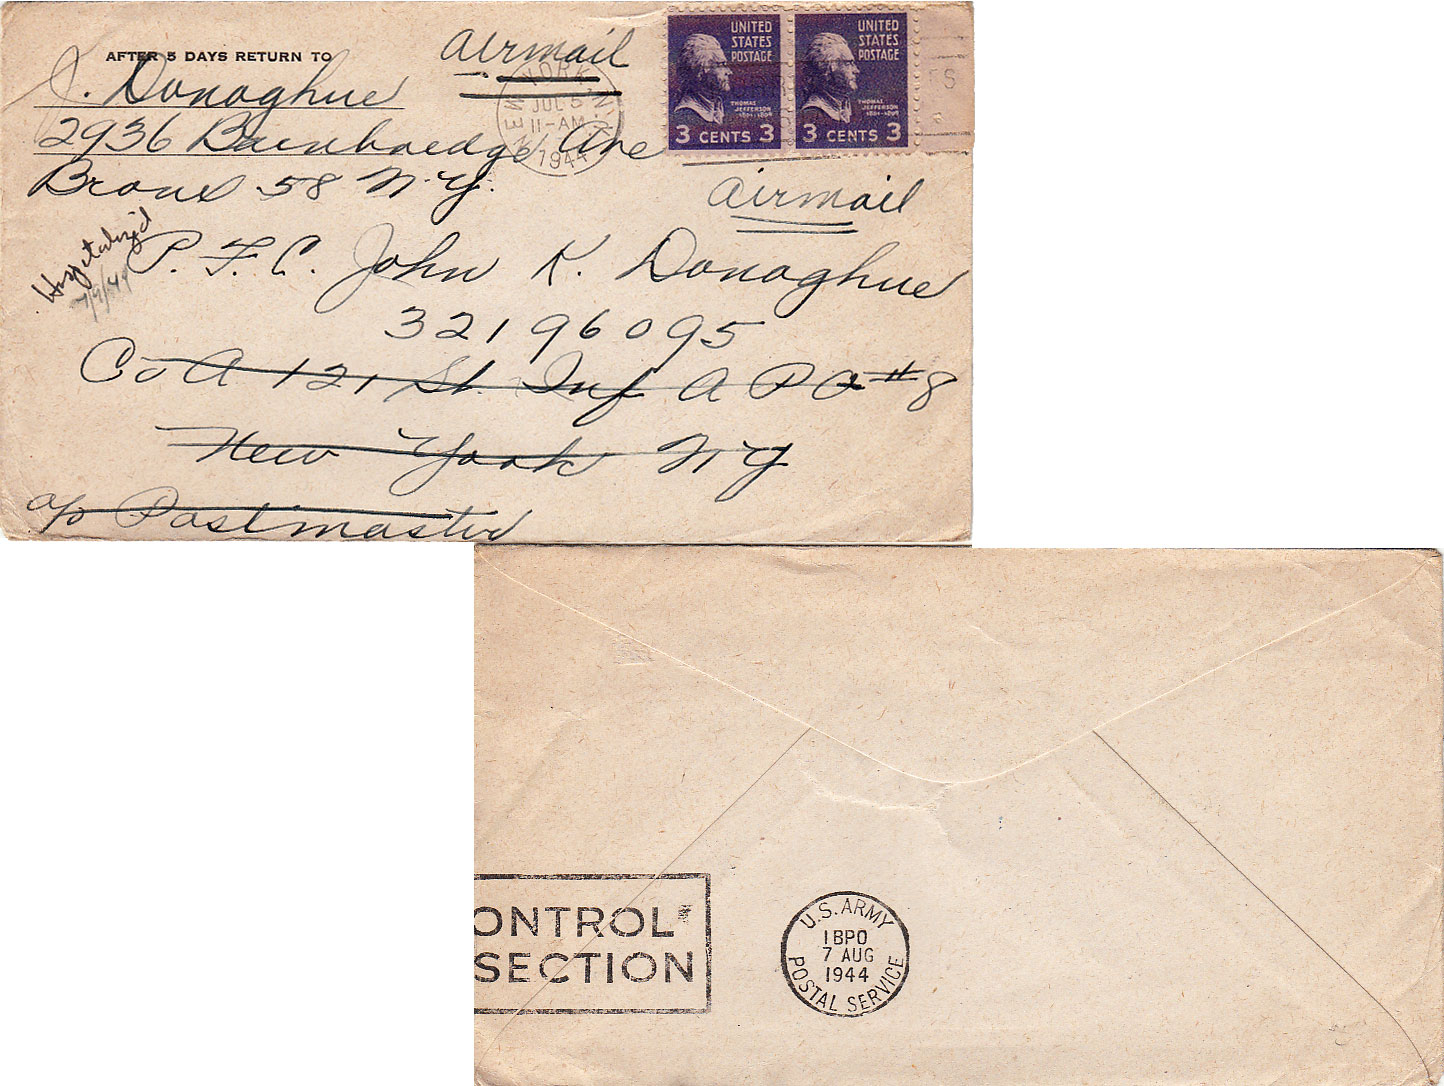 AFTER 5 DAYS RETURN TO
J. Donaghue
2936 Bainbridge Ave
Bronx 58 N.Y.
airmail
NEW YORK, N.Y.
JUL 6
11-AM
1944
UNITED STATES POSTAGE
THOMAS JEFFERSON
1801-1809
3 CENTS 3
UNITED STATES POSTAGE
THOMAS JEFFERSON
1801-1809
3 CENTS 3
airmail
Hospitalized
7/9/44
P.F.C. John K. Donaghue
32196095
Co A 121 St. Inf A P O # 8
New York N Y
c/o Postmaster
ONTROL
SECTION
U.S. ARMY
1BPO
7 AUG
1944
POSTAL SERVICE